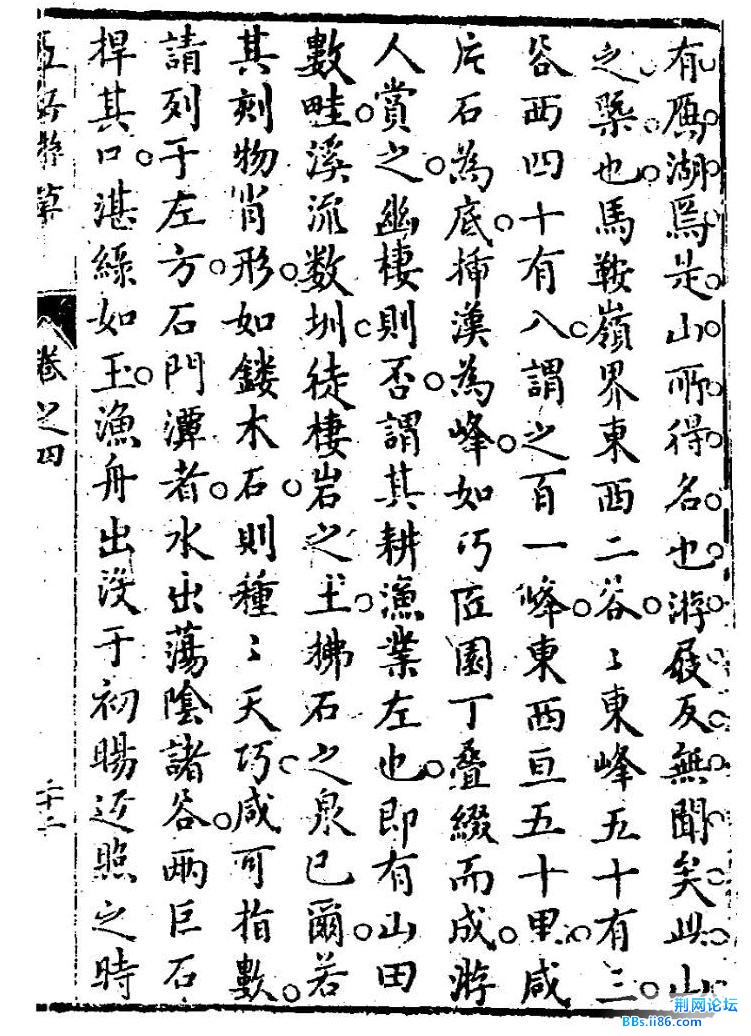 有鴈湖焉是山所得名也游屐反無聞矣此山
之槩也馬鞍嶺界東西二谷〻東峰五十有三
谷西四十有八謂之百一峰東西亘五十里咸
片石為底揷漢為峰如巧匠園丁叠綴而成游
人賞之幽棲則否謂其耕漁業左也即有山田
數畦溪流數圳徒棲岩之土拂石之泉已爾若
其刻物肖形如鏤木石則種〻天巧咸可指數
請列于左方石門潭者水出蕩陰諸谷兩巨石
捍其口湛綠如玉漁舟出没于初暘近照之時
卷之四
二十二
荆网论坛
BBs.ii86.com